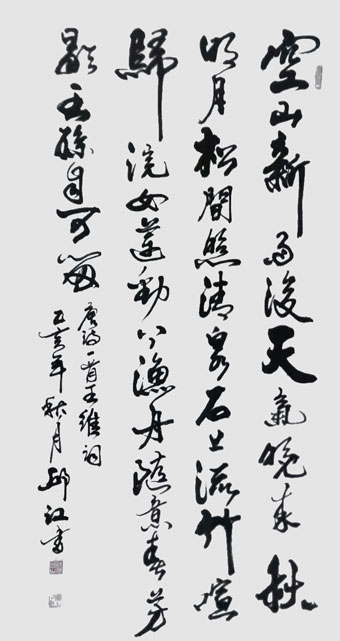 空山新雨後天氣晚来秋
明月松間照清泉石上流竹喧
歸浣女蓮動下漁舟隨意春芳
歇王孫自可留
唐詩一首王維詞
己亥年秋月邱江書